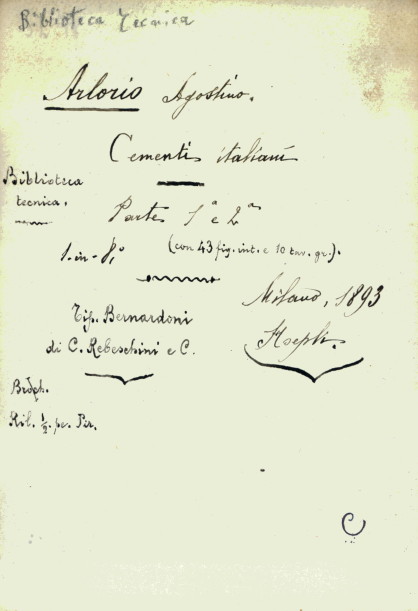 Biblioteca Tecnica
Arlorio Agostino.
Cementi italiani
Biblioteca
tecnica.
Parte 1ª e 2ª
1. in-8,° (con 43 fig. int. e 10 tav. gr.).
Milano, 1893
Hoepli.
Tip. Bernardoni
di C. Rebeschini e C.
Bröch.
Ril. ½ pe. Pir.
C